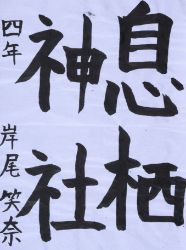 息栖
神社
四年 岸尾笑奈